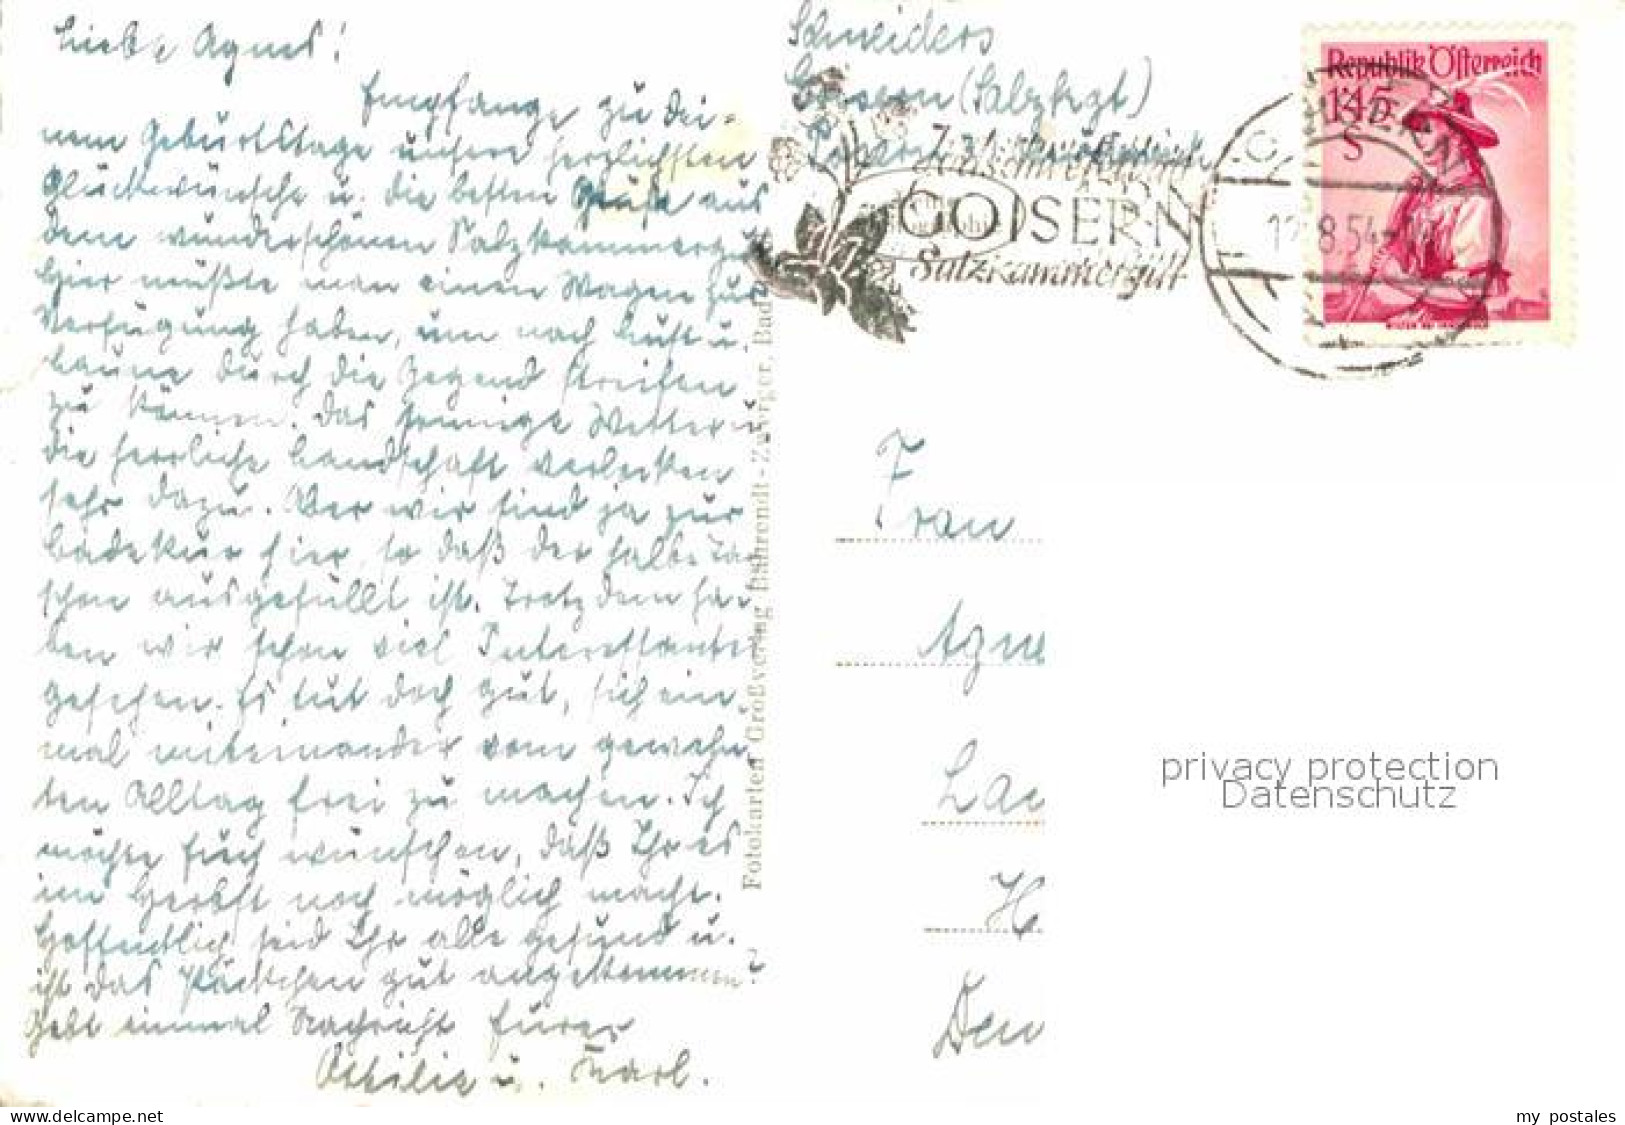 Liebe Agnes!
Empfange zu Dei-
nem Geburtstage unsere herzlichsten
Glückwünsche u. die besten Grüße aus
dem wunderschönen Salzkammergut
Hier müßte man einen Wagen zur
Verfügung haben, um nach Lust u.
Laune durch die Gegend streifen
zu können. Das sonnige Wetter u.
die herrliche Landschaft verlocken
sehr dazu. Aber wir sind ja zur
Badekur hier, so daß der halbe Ta
schon ausgefüllt ist. Trotzdem ha-
ben wir schon viel Interessante
gesehen. Es tut doch gut, sich ein-
mal miteinander vom gewohn
ten Alltag frei zu machen. Ich
möchte Euch wünschen, daß Ihr es
im Herbst noch möglich macht.
Hoffentlich seid Ihr alle gesund u.
ist das Päckchen gut angekommen?
Gebt einmal Nachricht Eurer
Ottilie u. Karl.
Fotokarten Großverlag Bährendt-Zwerger, Bad
Schneiders
Goisern (Salzkgt)
GOISERN
Salzkammergut
12.8.54
Republik Österreich
1'45
S
Frau
Agne
La
H
Den
privacy protection
Datenschutz
delcampe.net
my_postales